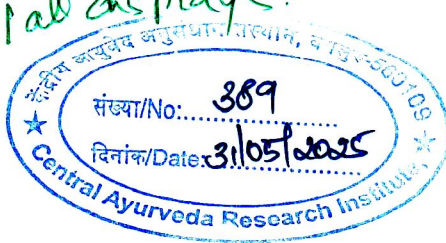 केंद्रीय आयुर्वेद अनुसंधान संस्थान,
संख्या/No: 389
दिनांक/Date: 31/05/2025
Central Ayurveda Research Institute,